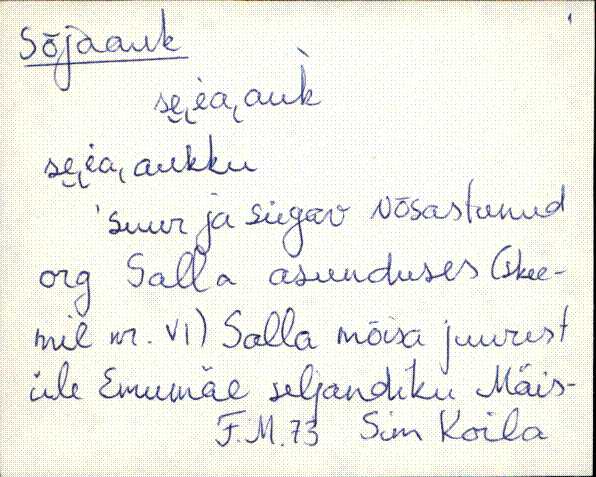 Sõjaauk
se̮i̯a, auk̀
se̮i̯a, aukku
'suur ja sügav võsastunud
org Salla asunduses (skee-
mil nr. VI) Salla mõisa juurest
üle Emumäe seljandiku Mäis-
F.M. 73 Sim Koila